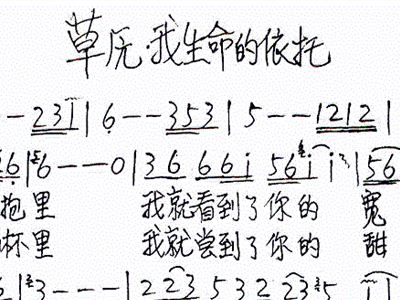 草原·我生命的依托
- - 2 3 i | 6 - - 3 5 3 | 5 - - 1 2 1 2 |
6 | 6 - - - 0 | 3 6 6 6 i 5 6 i i | 5 6
抱里 我就看到了你的 宽
杯里 我就尝到了你的 甜
3 - - - | 2 2 3 5 3 2 2 3 5 i i